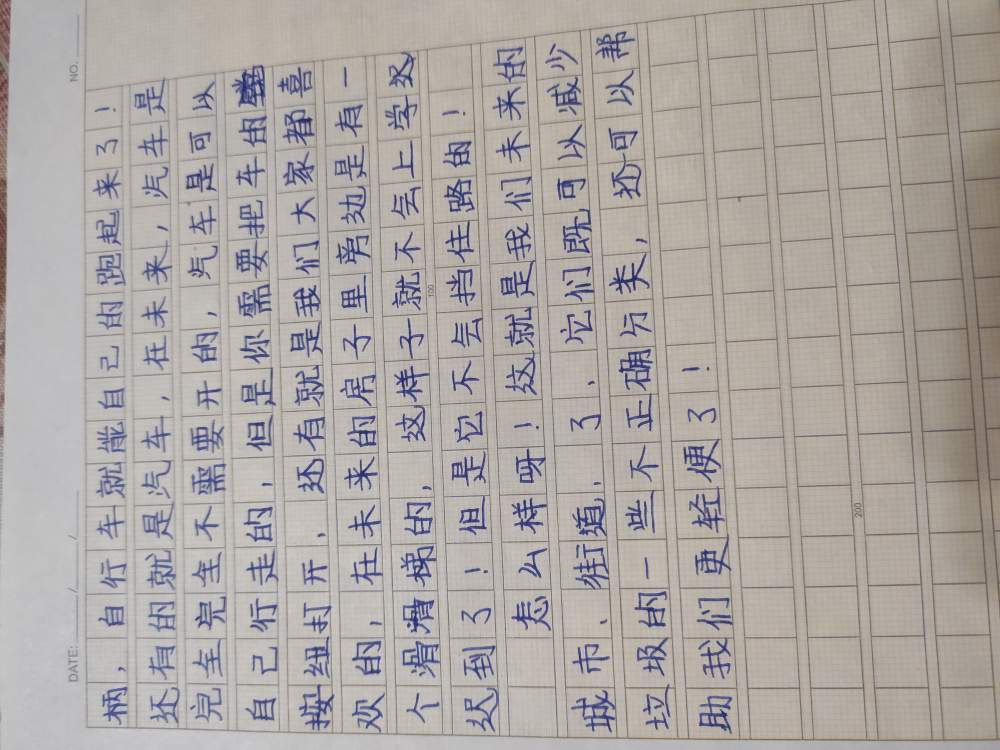 NO.
DATE: / /
柄，自行车就能自己的跑起来了！
还有的就是汽车，在未来，汽车是
完全完全不需要开的，汽车是可以
自己行走的，但是你需要把车的
按纽打开，还有就是我们大家都喜
欢的，在未来的房子里旁边是有一
个滑滑梯的，这样子就不会上学迟
迟到了！但是它不会挡住路的！
怎么样呀！这就是我们未来的
城市、街道，了、它们既可以减少
垃圾的一些不正确分类，还可以帮
助我们更轻便了！
100
200